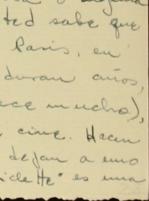 ted sabe que
Paris, en
duran años,
ece mucho),
cine. Hacen
dejan a uno
es una